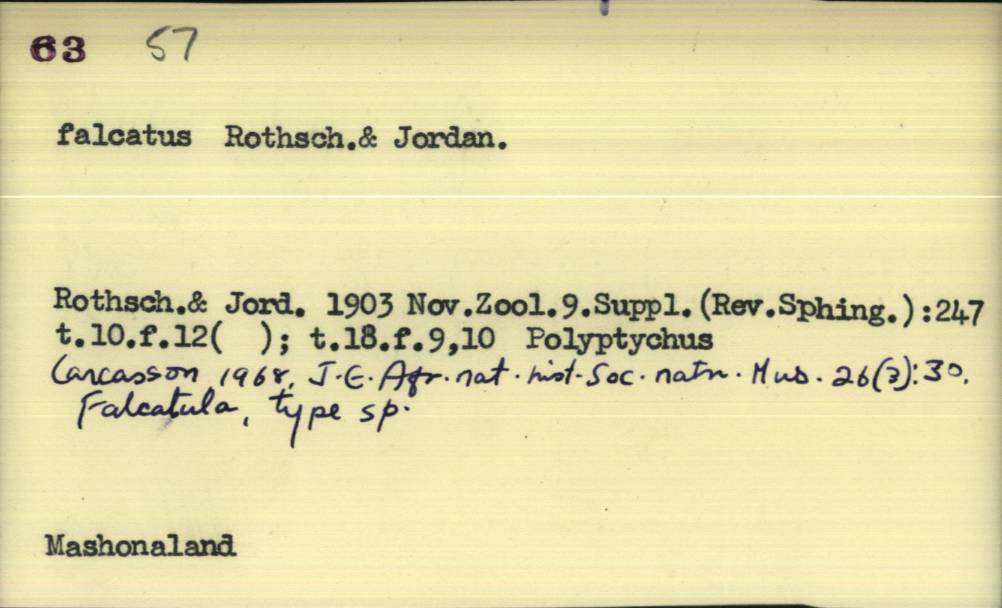 63 57
falcatus Rothsch.& Jordan.
Rothsch.& Jord. 1903 Nov.Zool.9.Suppl.(Rev.Sphing.):247
t.10.f.12( ); t.18.f.9,10 Polyptychus
Carcasson 1968. J.E.Afr.nat.hist.Soc.natn.Mus.26(3):30.
Falcatula, type sp.
Mashonaland